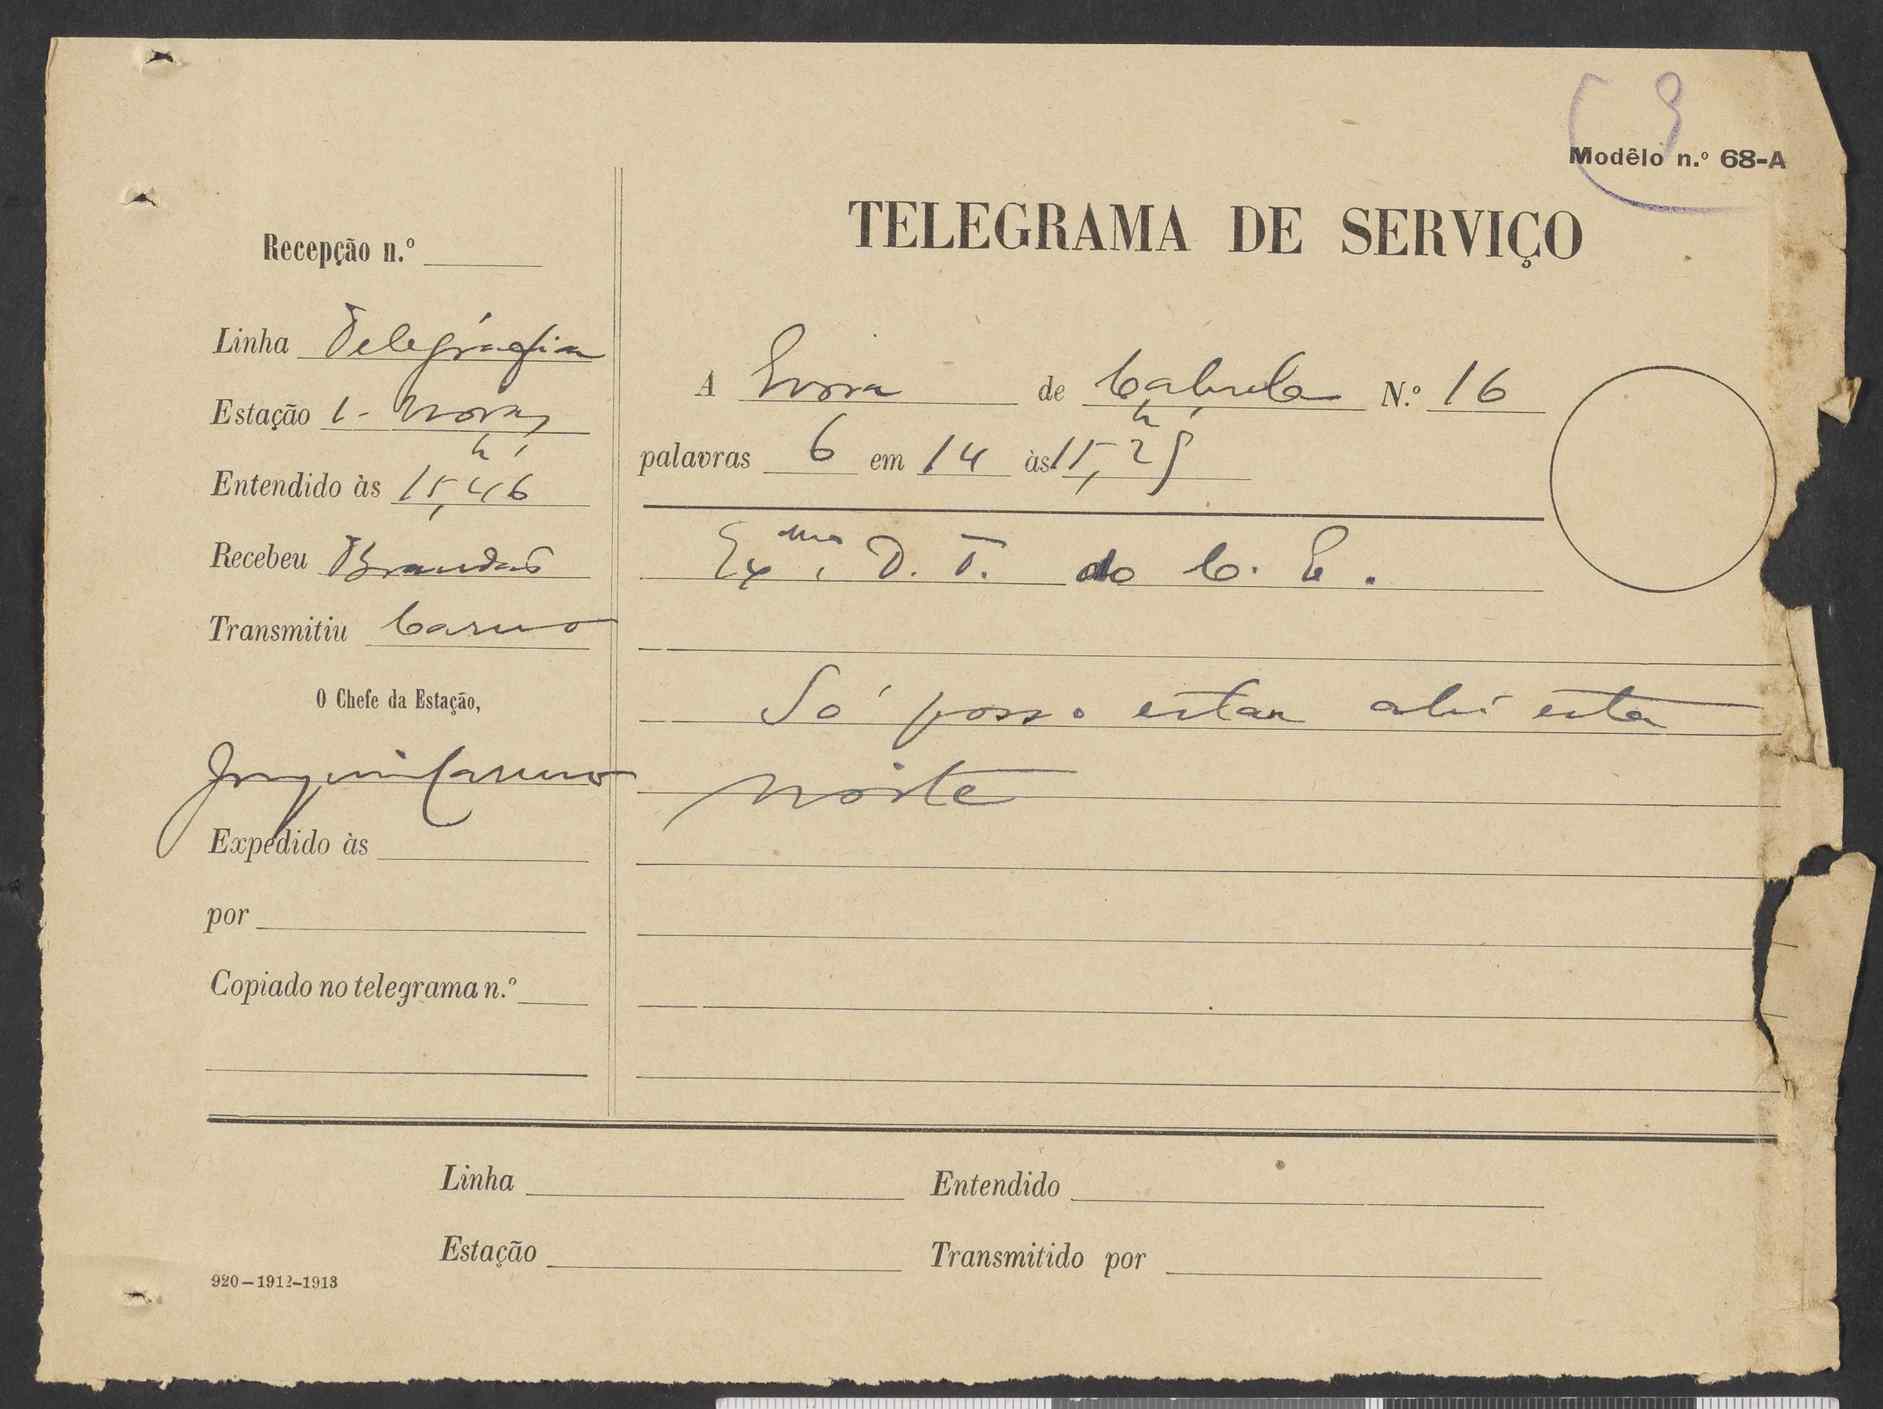 9
Modêlo n.º 68-A
TELEGRAMA DE SERVIÇO
Recepção n.º
Linha Telegrafia
Estação 
Entendido às 15,46 h
Recebeu Brandão
Transmitiu Caruço
O Chefe da Estação,
Expedido às
por
Copiado no telegrama n.º
A Evora de Cabrela N.º 16
palavras 6 em 14 às 15,25 h
Exmo. D. T. do C. E.
Só posso estar ahi esta
noite
Linha Entendido
Estação Transmitido por
920-1912-1913